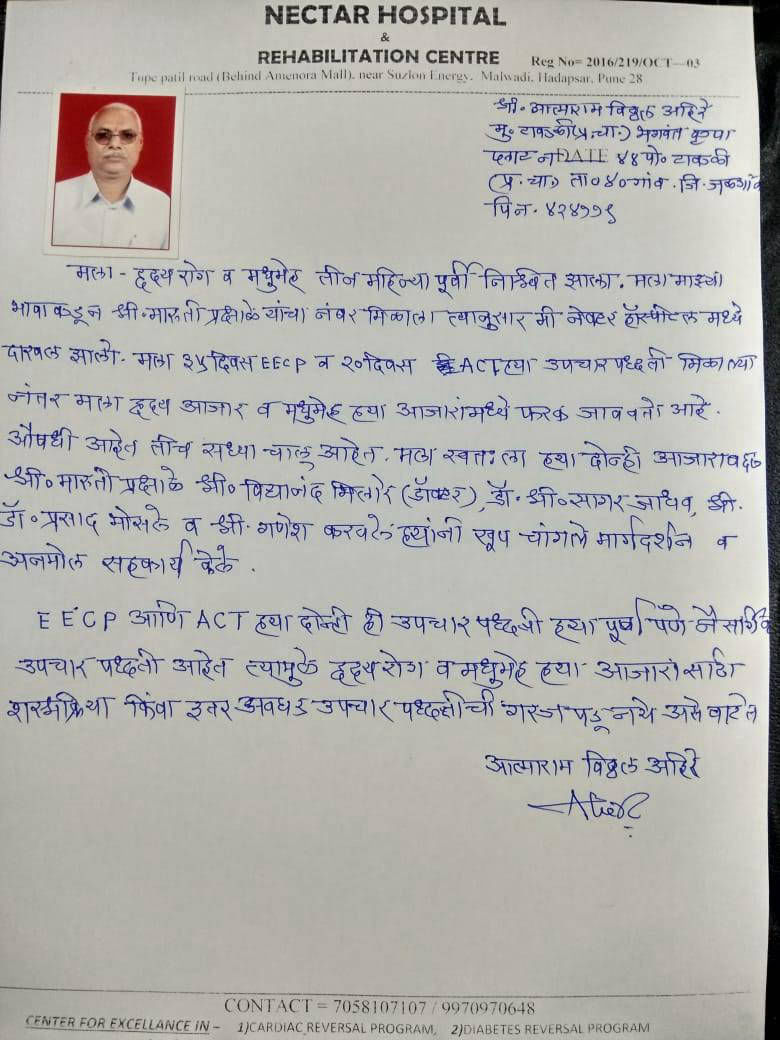 NECTAR HOSPITAL
&
REHABILITATION CENTRE
Reg No= 2016/219/OCT-03
Tupe patil road (Behind Amenora Mall), near Suzlon Energy, Malwadi, Hadapsar, Pune 28
श्री. आत्माराम विठ्ठल अहिरे
मु. टाकळी(प्र.चा.) भगवंत कृपा
प्लाट नं DATE ४४ पो. टाकळी
(प्र.चा) ता ४० गांव. जि. जळगांव
पिन. ४२४११९
मला - हृदय रोग व मधुमेह तीन महिन्या पूर्वी निश्चित झाला. मला माझ्या
भावाकडून श्री. मारुती प्रक्षाळे यांचा नंबर मिळाला त्यानुसार मी नेक्टर हॉस्पीटल मध्ये
दाखल झालो. मला ३५ दिवस EECP व २० दिवस ACT ह्या उपचार पध्दती मिळाल्या
नंतर मला हृदय आजार व मधुमेह ह्या आजारांमध्ये फरक जाणवतो आहे.
औषधी आहेत तीच सध्या चालु आहेत. मला स्वतःला ह्या दोन्ही आजाराबद्दल
श्री. मारुती प्रक्षाळे श्री. विद्यानंद (डॉक्टर), डॉ. श्री. सागर जाधव, श्री.
डॉ. प्रसाद भोसले व श्री. गणेश करवले ह्यांनी खूप चांगले मार्गदर्शन व
अनमोल सहकार्य केले.
EECP आणि ACT ह्या दोन्ही ही उपचार पध्दती ह्या पूर्ण पणे नैसर्गिक
उपचार पध्दती आहेत त्यामुळे हृदय रोग व मधुमेह ह्या आजारांसाठी
शस्त्रक्रिया किंवा इतर अवघड उपचार पध्दतीची गरज पडू नये असे वाटते
आत्माराम विठ्ठल अहिरे
CONTACT = 7058107107 / 9970970648
CENTER FOR EXCELLANCE IN – 1)CARDIAC REVERSAL PROGRAM, 2)DIABETES REVERSAL PROGRAM